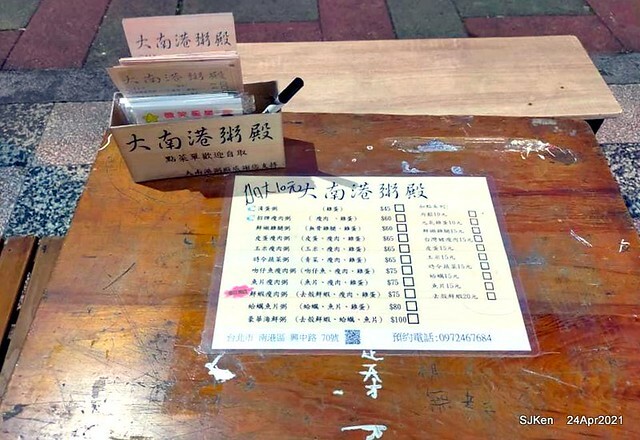 大南港粥殿
大南港粥殿
大南港粥殿
點菜單歡迎自取
加大10元 大南港粥殿
清蛋粥 (雞蛋) $45
招牌瘦肉粥 (瘦肉、雞蛋) $60
鮮嫩雞腿粥 $60
皮蛋瘦肉粥 (皮蛋、瘦肉、雞蛋) $65
玉米瘦肉粥 (玉米、瘦肉、雞蛋) $65
時令蔬菜粥 (青菜、瘦肉、雞蛋) $65
吻仔魚瘦肉粥 (吻仔魚、瘦肉、雞蛋) $75
魚片瘦肉粥 (魚片、瘦肉、雞蛋) $75
鮮蝦瘦肉粥 (去殼鮮蝦、瘦肉、雞蛋) $75
蛤蠣魚片粥 (蛤蠣、魚片、雞蛋) $80
豪華海鮮粥 (去殼鮮蝦、蛤蠣、魚片) $100
油條10元
鮮嫩雞腿15元
台灣豬瘦肉15元
皮蛋15元
玉米15元
時令蔬菜15元
蛤蠣15元
魚片15元
去殼鮮蝦20元
台北市 南港區 興中路 70號
預約電話:0972467684
SJKen 24Apr2021